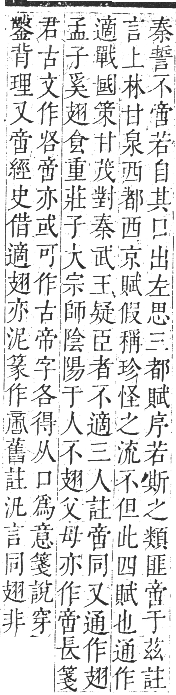 秦誓不啻若自其口出左思三都賦序若斯之類匪啻于兹註
言上林甘泉西都西京賦假稱珍怪之流不但此四賦也通作
適戰國策甘茂對秦武王疑臣者不適三人註啻同又通作翅
孟子奚翅食重莊子大宗師陰陽于人不翅父母亦作啻長箋
君古文作啻亦或可作古帝字各得从口爲意箋說穿
鑿背理又啻經史借適翅亦泥篆作啻舊註汎言同翅非